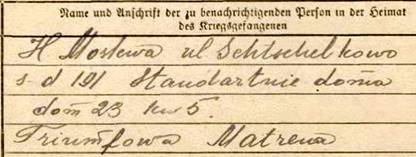 Name und Anschrift der zu benachrichtigenden Person in der Heimat
des Kriegsgefangenen
H Moskwa ul Schtschelkowo
s-d 191 Standartnie doma
dom 23 kw 5.
Triumfowa Matrena